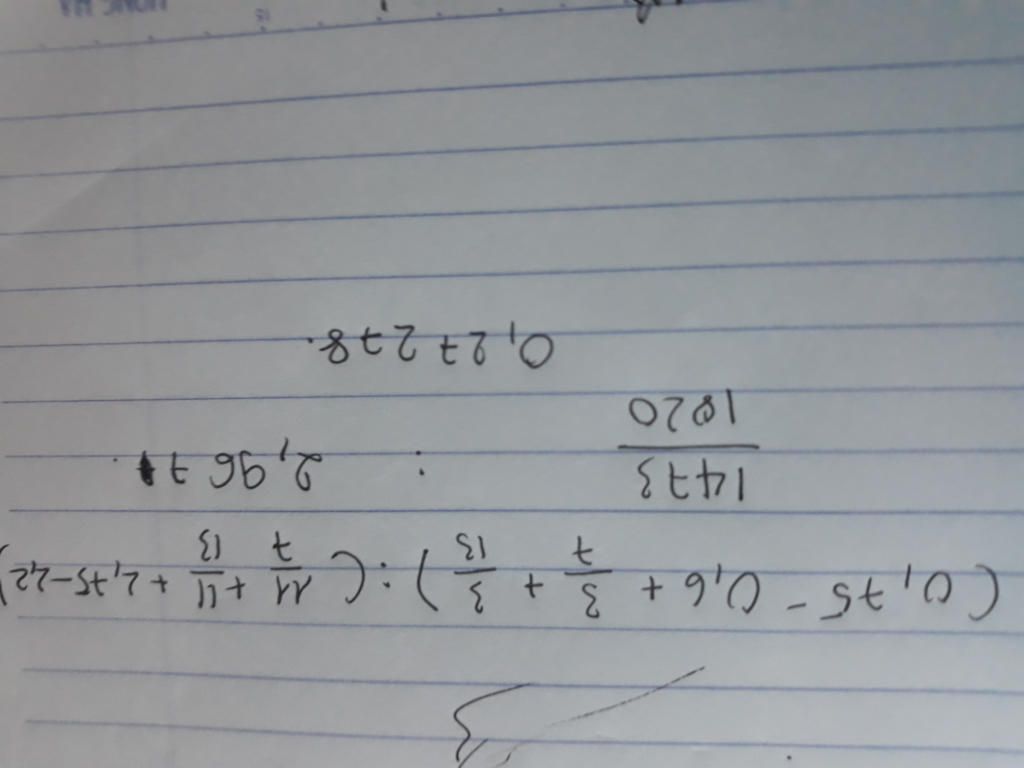 (0,75 - 0,6 + 3/7 + 3/13) : (11/7 + 11/13 + 2,75 - 2,2)
1473/1820 : 2,967
0,27278.